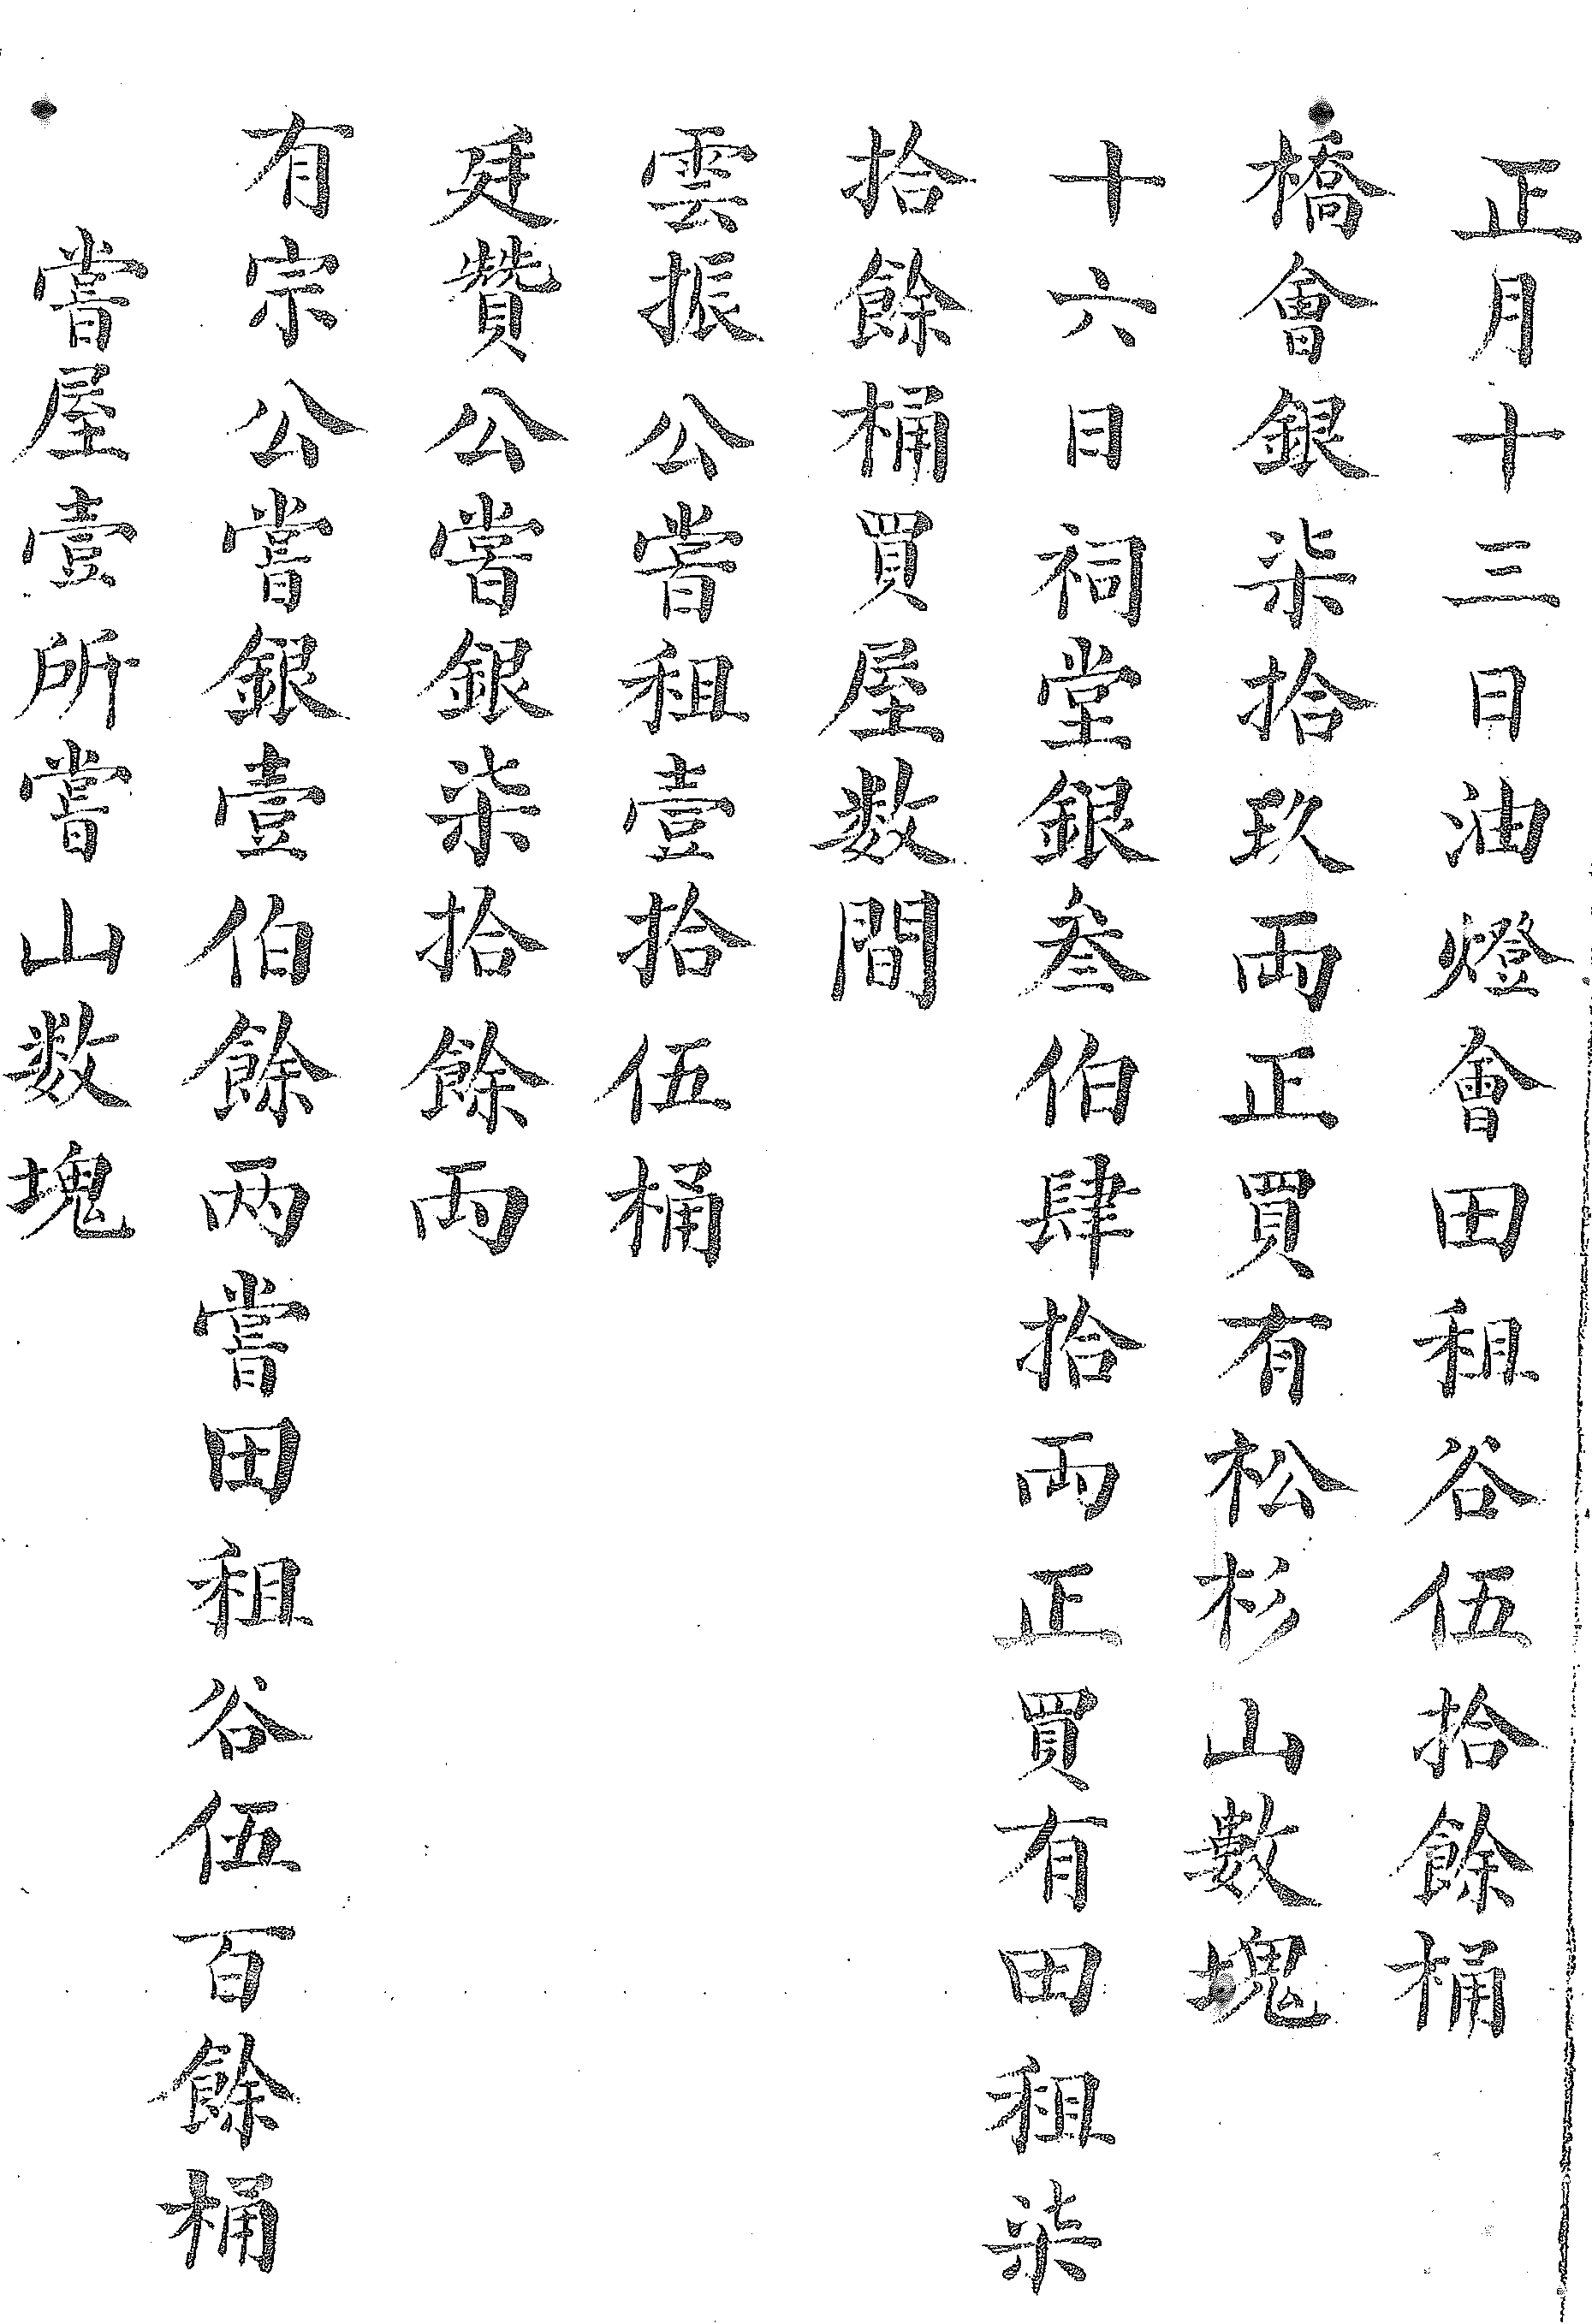 正月十三日油燈會田租谷伍拾餘桶
橋會銀柒拾玖両正買有松杉山數塊
十六日祠堂銀叁伯肆拾両正買有田租柒
拾餘桶買屋数間
雲振公嘗租壹拾伍桶
廷贊公嘗銀柒拾餘両
有宗公嘗銀壹伯餘两嘗田租谷伍百餘桶
嘗屋壹所嘗山数塊